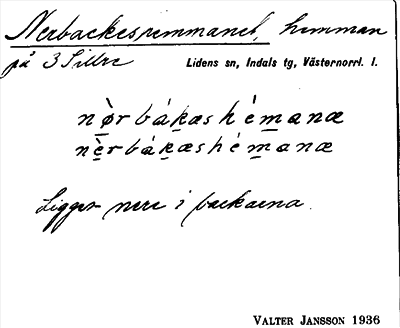 Nerbackeshemmanet, hemman
på 3 Sillre Lidens sn, Indals tg, Västernorrl. l.
nø̀r bákæs hémanæ
nèrbákæshémanæ
Ligger nere i backarna.
VALTER JANSSON 1936